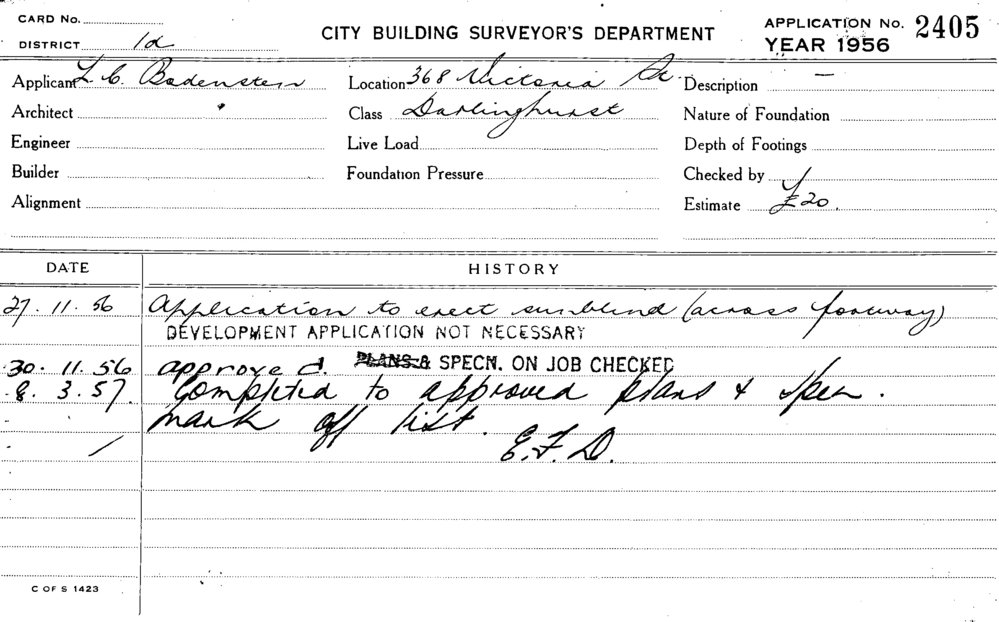 CARD No.
DISTRICT 1d
CITY BUILDING SURVEYOR'S DEPARTMENT
APPLICATION No. 2405
YEAR 1956
Applicant L. C. Badenstein
Location 368 Victoria St.
Description —
Architect
Class Darlinghurst
Nature of Foundation
Engineer
Live Load
Depth of Footings
Builder
Foundation Pressure
Checked by
Alignment
Estimate £20.
DATE
HISTORY
27. 11. 56 Application to erect sunblind (across footway)
DEVELOPMENT APPLICATION NOT NECESSARY
30. 11. 56 approved. PLANS & SPECN. ON JOB CHECKED
8. 3. 57. Completed to approved plans & spec.
mark off list.
E. F. D.
C OF S 1423